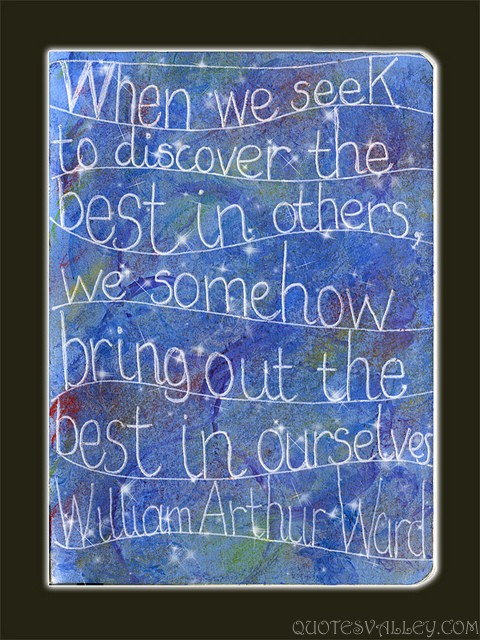 When we seek
to discover the
best in others,
we somehow
bring out the
best in ourselves
William Arthur Ward
QUOTESVALLEY.COM